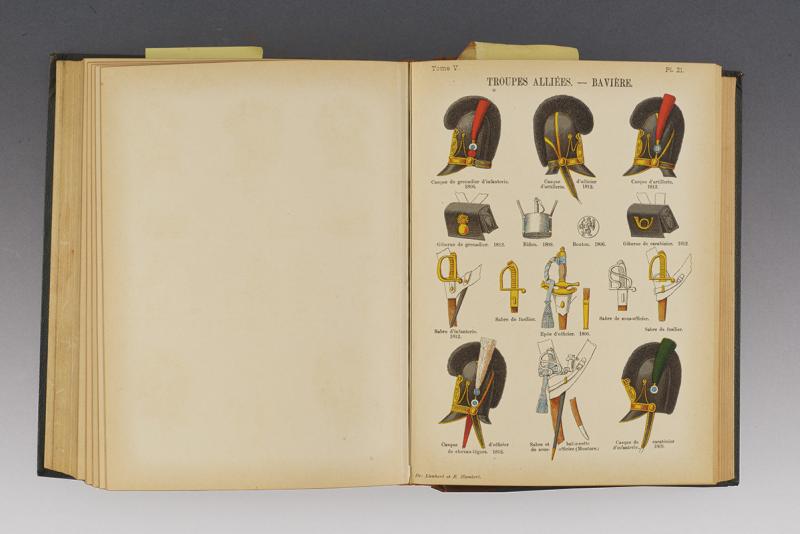 Tome V.
Pl. 21.
TROUPES ALLIÉES. — BAVIÈRE.
Casque de grenadier d'infanterie.
1806.
Casque d'officier
d'artillerie. 1812.
Casque d'artillerie.
1812.
Giberne de grenadier. 1812.
Bidon. 1809.
Bouton. 1806.
Giberne de carabinier. 1812.
Sabre d'infanterie.
1812.
Sabre de fusilier.
Epée d'officier. 1806.
Sabre de sous-officier.
Sabre de fusilier.
Casque d'officier
de chevau-légers. 1812.
Sabre et baïonnette
de sous-officier
Casque de carabinier
d'infanterie.
Lienhart et R. Humbert.